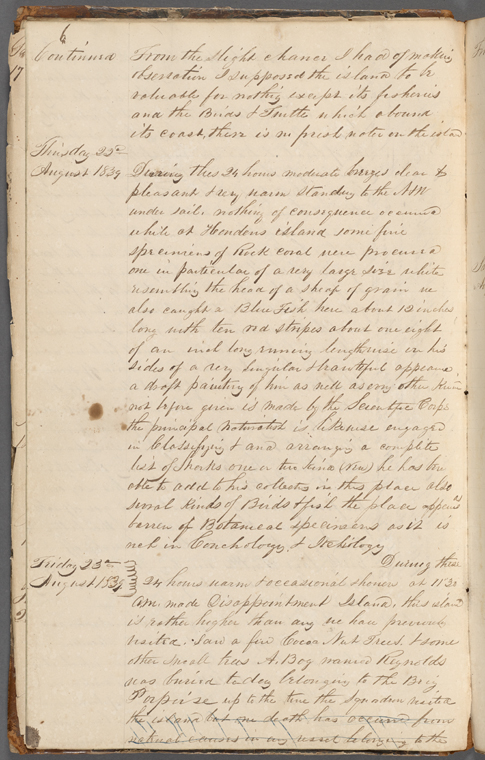 6
Continued From the slight chance I had of making
observation I supposed the island to be
valuable for nothing except its fisheries
and the Birds & Turtle which abound
its coast, there is no fresh water on the island
Thursday 22nd
August 1839 During thes 24 hours moderate breezes clear &
pleasant & very warm Standing to the NW
under sail nothing of consequence occurred
while at Hondens island some fine
specimens of Rock coral were procured
one in particular of a very large size white
resembling the head of a sheap of grain we
also caught a Blue Fish here about 12 inches
long with ten red stripes about one eight
of an inch long running lengthwise on his
sides of a very singular & beautiful appearance
a draft painting of him as well as every other
not before given is made by the Scientific Corps
the principal naturalist is likewise engaged
in Classifying & and arranging a complete
list of Sharks one or two kind (New) he has been
able to add to his collection in this place also
several kinds of Birds & fish the place appears
barren of Botanical specimens as it is
not in Conchology & Icthology
Friday 23rd During these
August 1839 24 hours warm & occasional shower at 11:30
am. made Disappointment Island, this island
is rather higher than any we have previously
visited. Saw a few Cocoa Nut Trees, & some
other small trees A. Boy named Reynolds
was buried to day belonging to the Brig
Porpoise up to the time the Squadron visited
the island but one death has occured from
natural causes in any vessel belonging to the